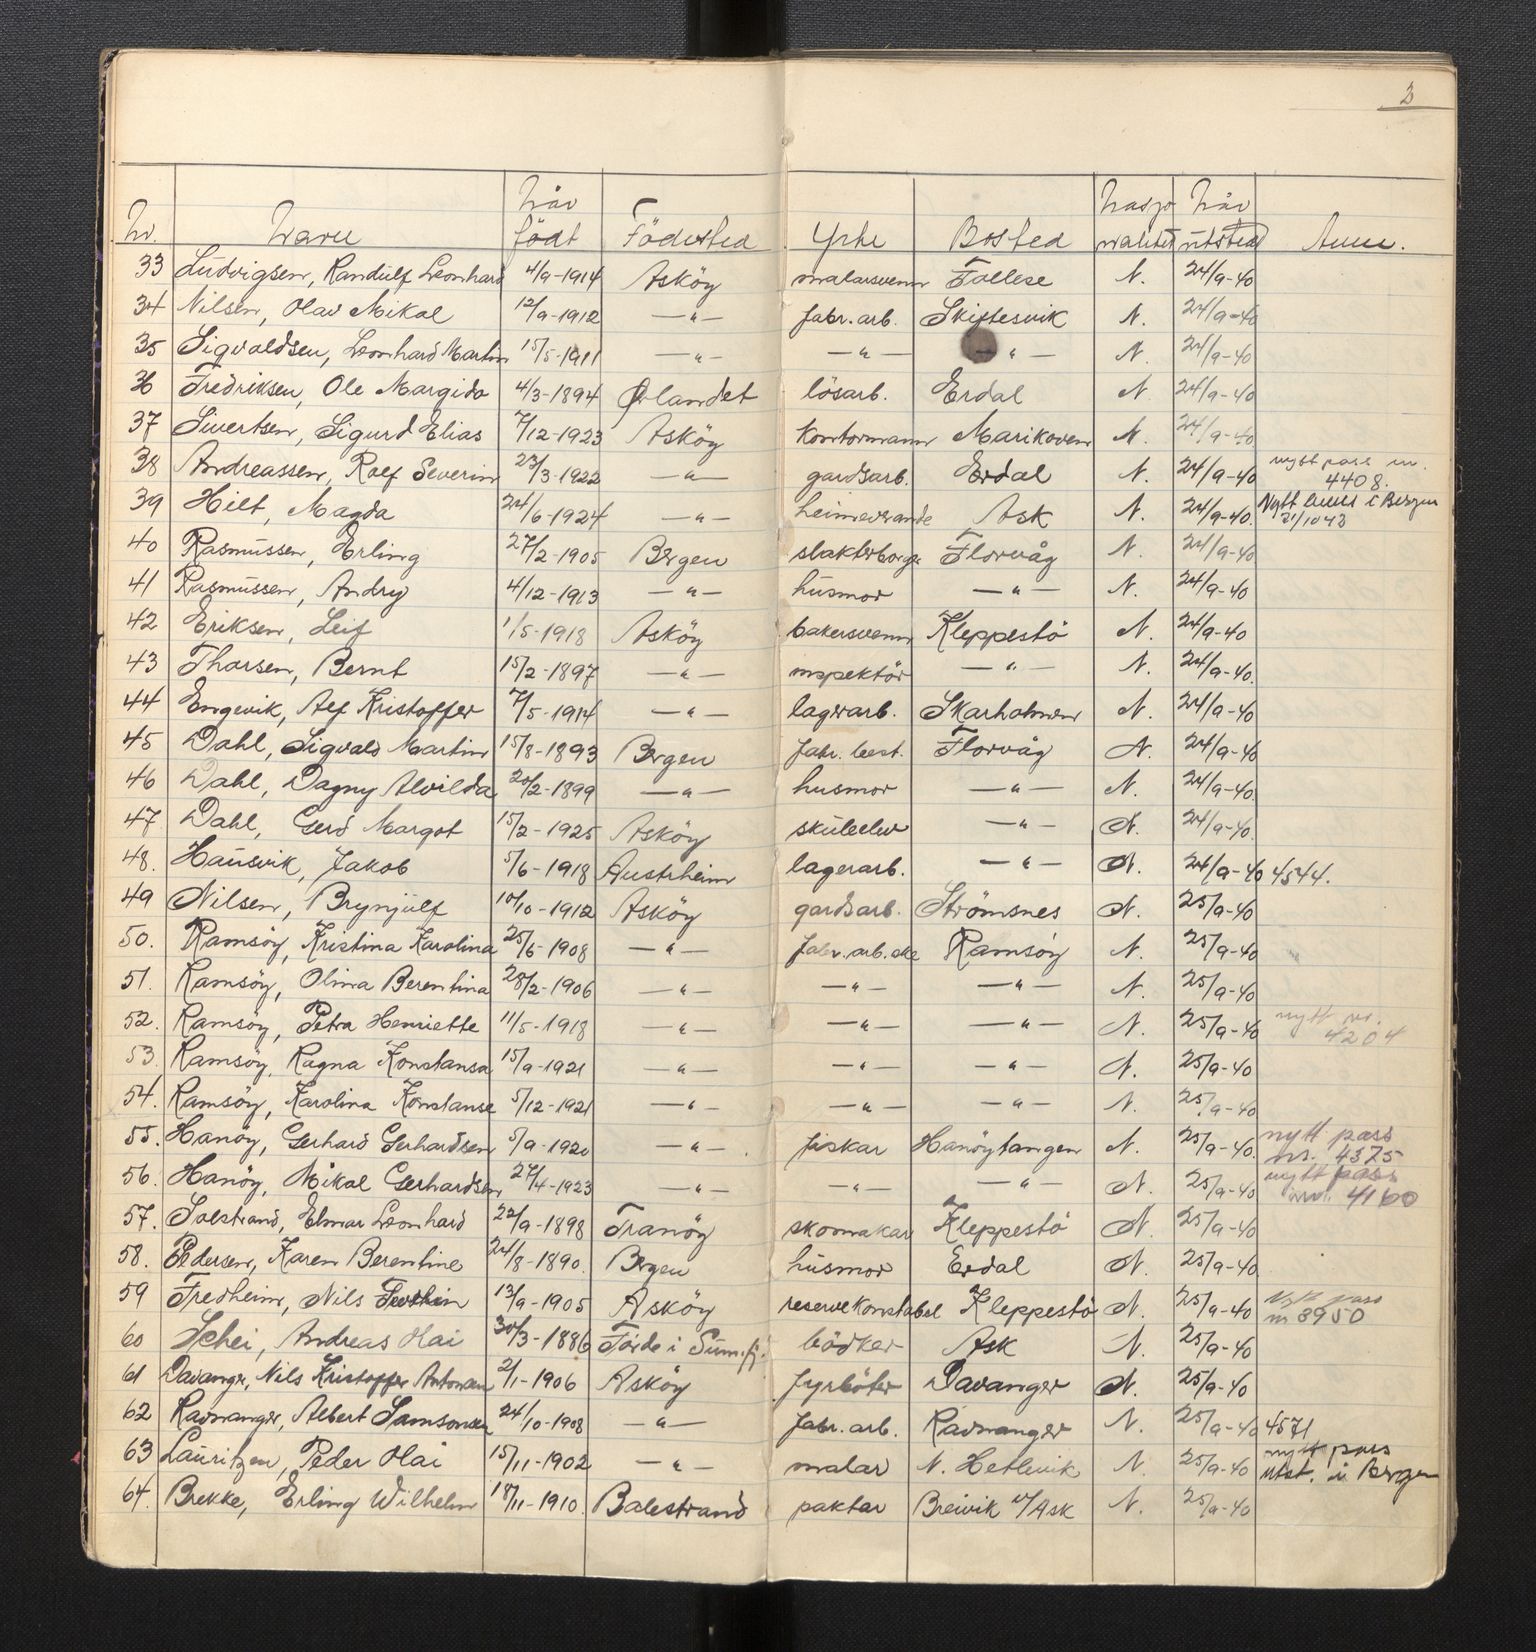 2
Nr. Navn Når födt Födested Yrke Bosted Nasjonalitet Når utsted Anm.
33 Ludvigsen, Randulf Leonhard 4/9-1914 Asköy malarsvenn Follese N. 24/9-40
34 Nilsen, Olav Mikal 12/9-1912 —"— fabr. arb. Skiftesvik N. 24/9-40
35 Sigvaldsen, Leonhard Martin 15/5-1911 —"— —"— —"— N. 24/9-40
36 Fredriksen, Ole Margido 4/3-1894 Ørlandet lösarb. Erdal N. 24/9-40
37 Sivertsen, Sigurd Elias 7/12-1923 Asköy kontormann Marikoven N. 24/9-40
38 Andreassen, Rolf Severin 23/3-1922 —"— gardsarb. Erdal N. 24/9-40 nytt pass nr. 4408.
39 Hilt, Magda 24/6-1924 —"— heimeverande Ask N. 24/9-40. Nytt i Bergen 21/10 43
40 Rasmussen, Erling 27/2-1905 Bergen Florvåg N. 24/9-40
41 Rasmussen, Andry 4/12-1913 —"— husmor —"— N. 24/9-40
42 Eriksen, Leif 1/5-1918 Asköy bakersvenn Kleppestö N. 24/9-40
43 Thorsen, Bernt 15/2-1897 —"— inspektör —"— N. 24/9-40.
44 Engevik, Alf Kristoffer 7/5-1914 —"— lagerarb. Skarholmen N. 24/9-40
45 Dahl, Sigvald Martin 15/8-1893 Bergen fabr. best. Florvåg N. 24/9-40
46 Dahl, Dagny Alvilda 20/2-1899 —"— husmor —"— N. 24/9-40
47 Dahl, Gerd Margot 15/2-1925 Asköy skuleelev —"— N. 24/9-40.
48. Hausvik, Jakob 5/6-1918 Austrheim lagerarb. —"— N. 24/9-40 4544.
49 Nilsen, Brynjulf 10/10-1912 Asköy gardsarb. Strömsnes N. 25/9-40
50. Ramsöy, Kristina Karolina 25/5-1908 —"— fabr. arb. ske Ramsöy N. 25/9-40
51. Ramsöy, Olina Berentina 28/2-1906 —"— —"— —"— N. 25/9-40
52. Ramsöy, Petra Henriette 11/5-1918 —"— —"— —"— N. 25/9-40 nytt nr. 4204
53. Ramsöy, Ragna Konstansa 15/9-1921 —"— —"— —"— N. 25/9-40
54. Ramsöy, Karolina Konstanse 5/12-1921 —"— —"— —"— N. 25/9-40
55. Hanöy, Gerhard Gerhardsen 5/9-1920 —"— fiskar Hanöytangen N. 25/9-40. nytt pass nr. 4375
56. Hanöy, Mikal Gerhardsen 27/4-1923 —"— —"— —"— N. 25/9-40 nytt pass nr. 4160
57. Solstrand, Elmar Leonhard 22/9-1898 Tranöy skomakar Kleppestö N. 25/9-40
58. Pedersen, Karen Berentine 24/8-1890. Bergen husmor Erdal N. 25/9-40
59 Fredheim, Nils 13/9-1905 Asköy reservekonstabel Kleppestö N. 25/9-40 Nytt pass nr 3950
60 Schei, Andreas Olai 30/3-1886 Förde i Sunnfj. bödker Ask N. 25/9-40
61 Davanger, Nils Kristoffer Antonsen 2/1-1906 Asköy fyrböter Davanger N. 25/9-40
62 Ravnanger, Albert Samsonsen 24/10-1908 —"— fabr. arb. Ravnanger N. 25/9-40 4571
63 Lauritzen, Peder Olai 15/11-1902 —"— malar N. Hetlevik N. 25/9-40 nytt pass utst. i Bergen
64. Brekke, Erling Wilhelm 18/11-1910. Balestrand paktar Breivik v/Ask N. 25/9-40